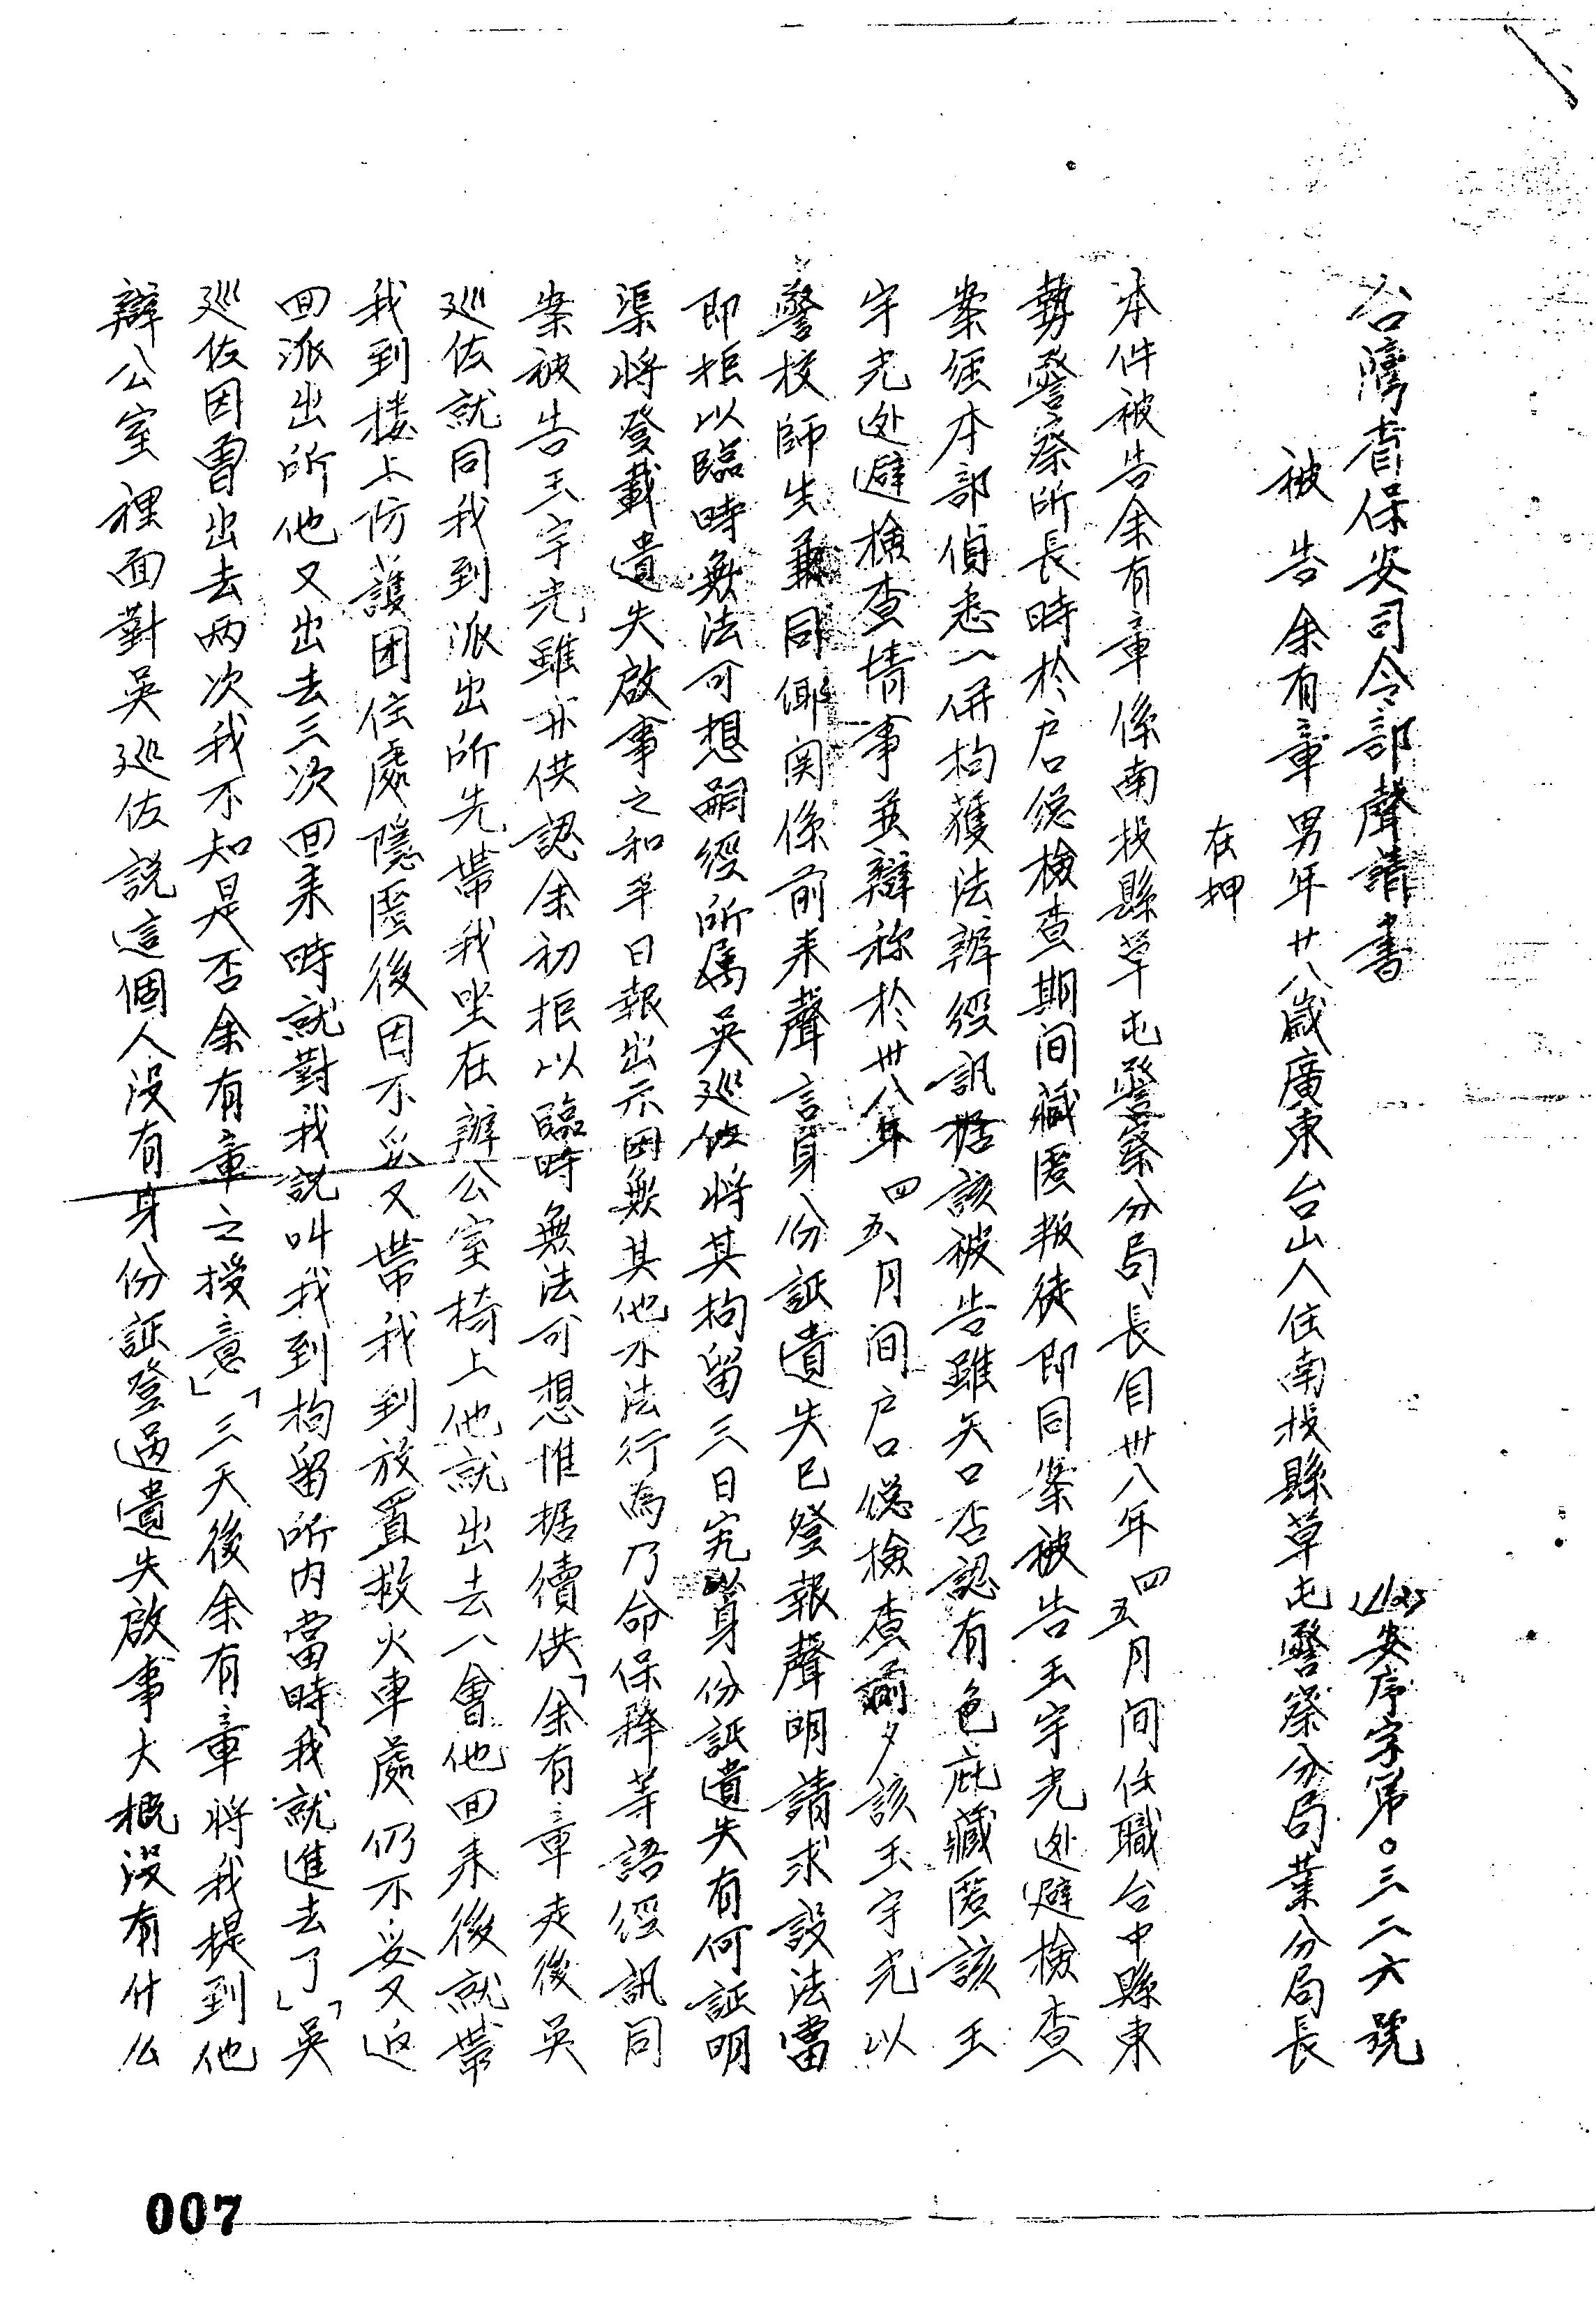 台灣省保安司令部聲請書
安序字第○三二六號
被告余有章男年廿八歲廣東台山人住南投縣草屯警察分局業分局長
在押
本件被告余有章係南投縣草屯警察分局長自卅八年四五月间任職台中縣東
勢警察所長時於户口總檢查期间藏匿叛徒即同案被告王宇光迯避檢查
案經本部偵悉一併拘獲法辦經訊据該被告雖矢口否認有包庇藏匿該王
宇光迯避檢查情事並辯称於卅八年四五月间户口總檢查前夕該王宇光以
警校師生兼同鄉関係前来聲言身份証遺失已登報聲明請求設法當
即拒以臨時無法可想嗣經所属吳巡佐将其拘留三日究以身份証遺失有何証明
渠将登載遺失啟事之和平日報出示因無其他不法行為乃命保释等語經訊同
案被告王宇光雖亦供認余初拒以臨時無法可想惟据續供「余有章走後吳
巡佐就同我到派出所先帶我坐在辦公室椅上他就出去一會他回来後就帶
我到楼上防護团住處隱匿後因不妥又帶我到放置救火車處仍不妥又返
回派出所他又出去三次回来時就對我説叫我到拘留所内當時我就進去了」「吳
巡佐因曾出去两次我不知是否余有章之授意」「三天後余有章将我提到他
辦公室裡面對吳巡佐説這個人没有身份証登過遺失啟事大概没有什么
007